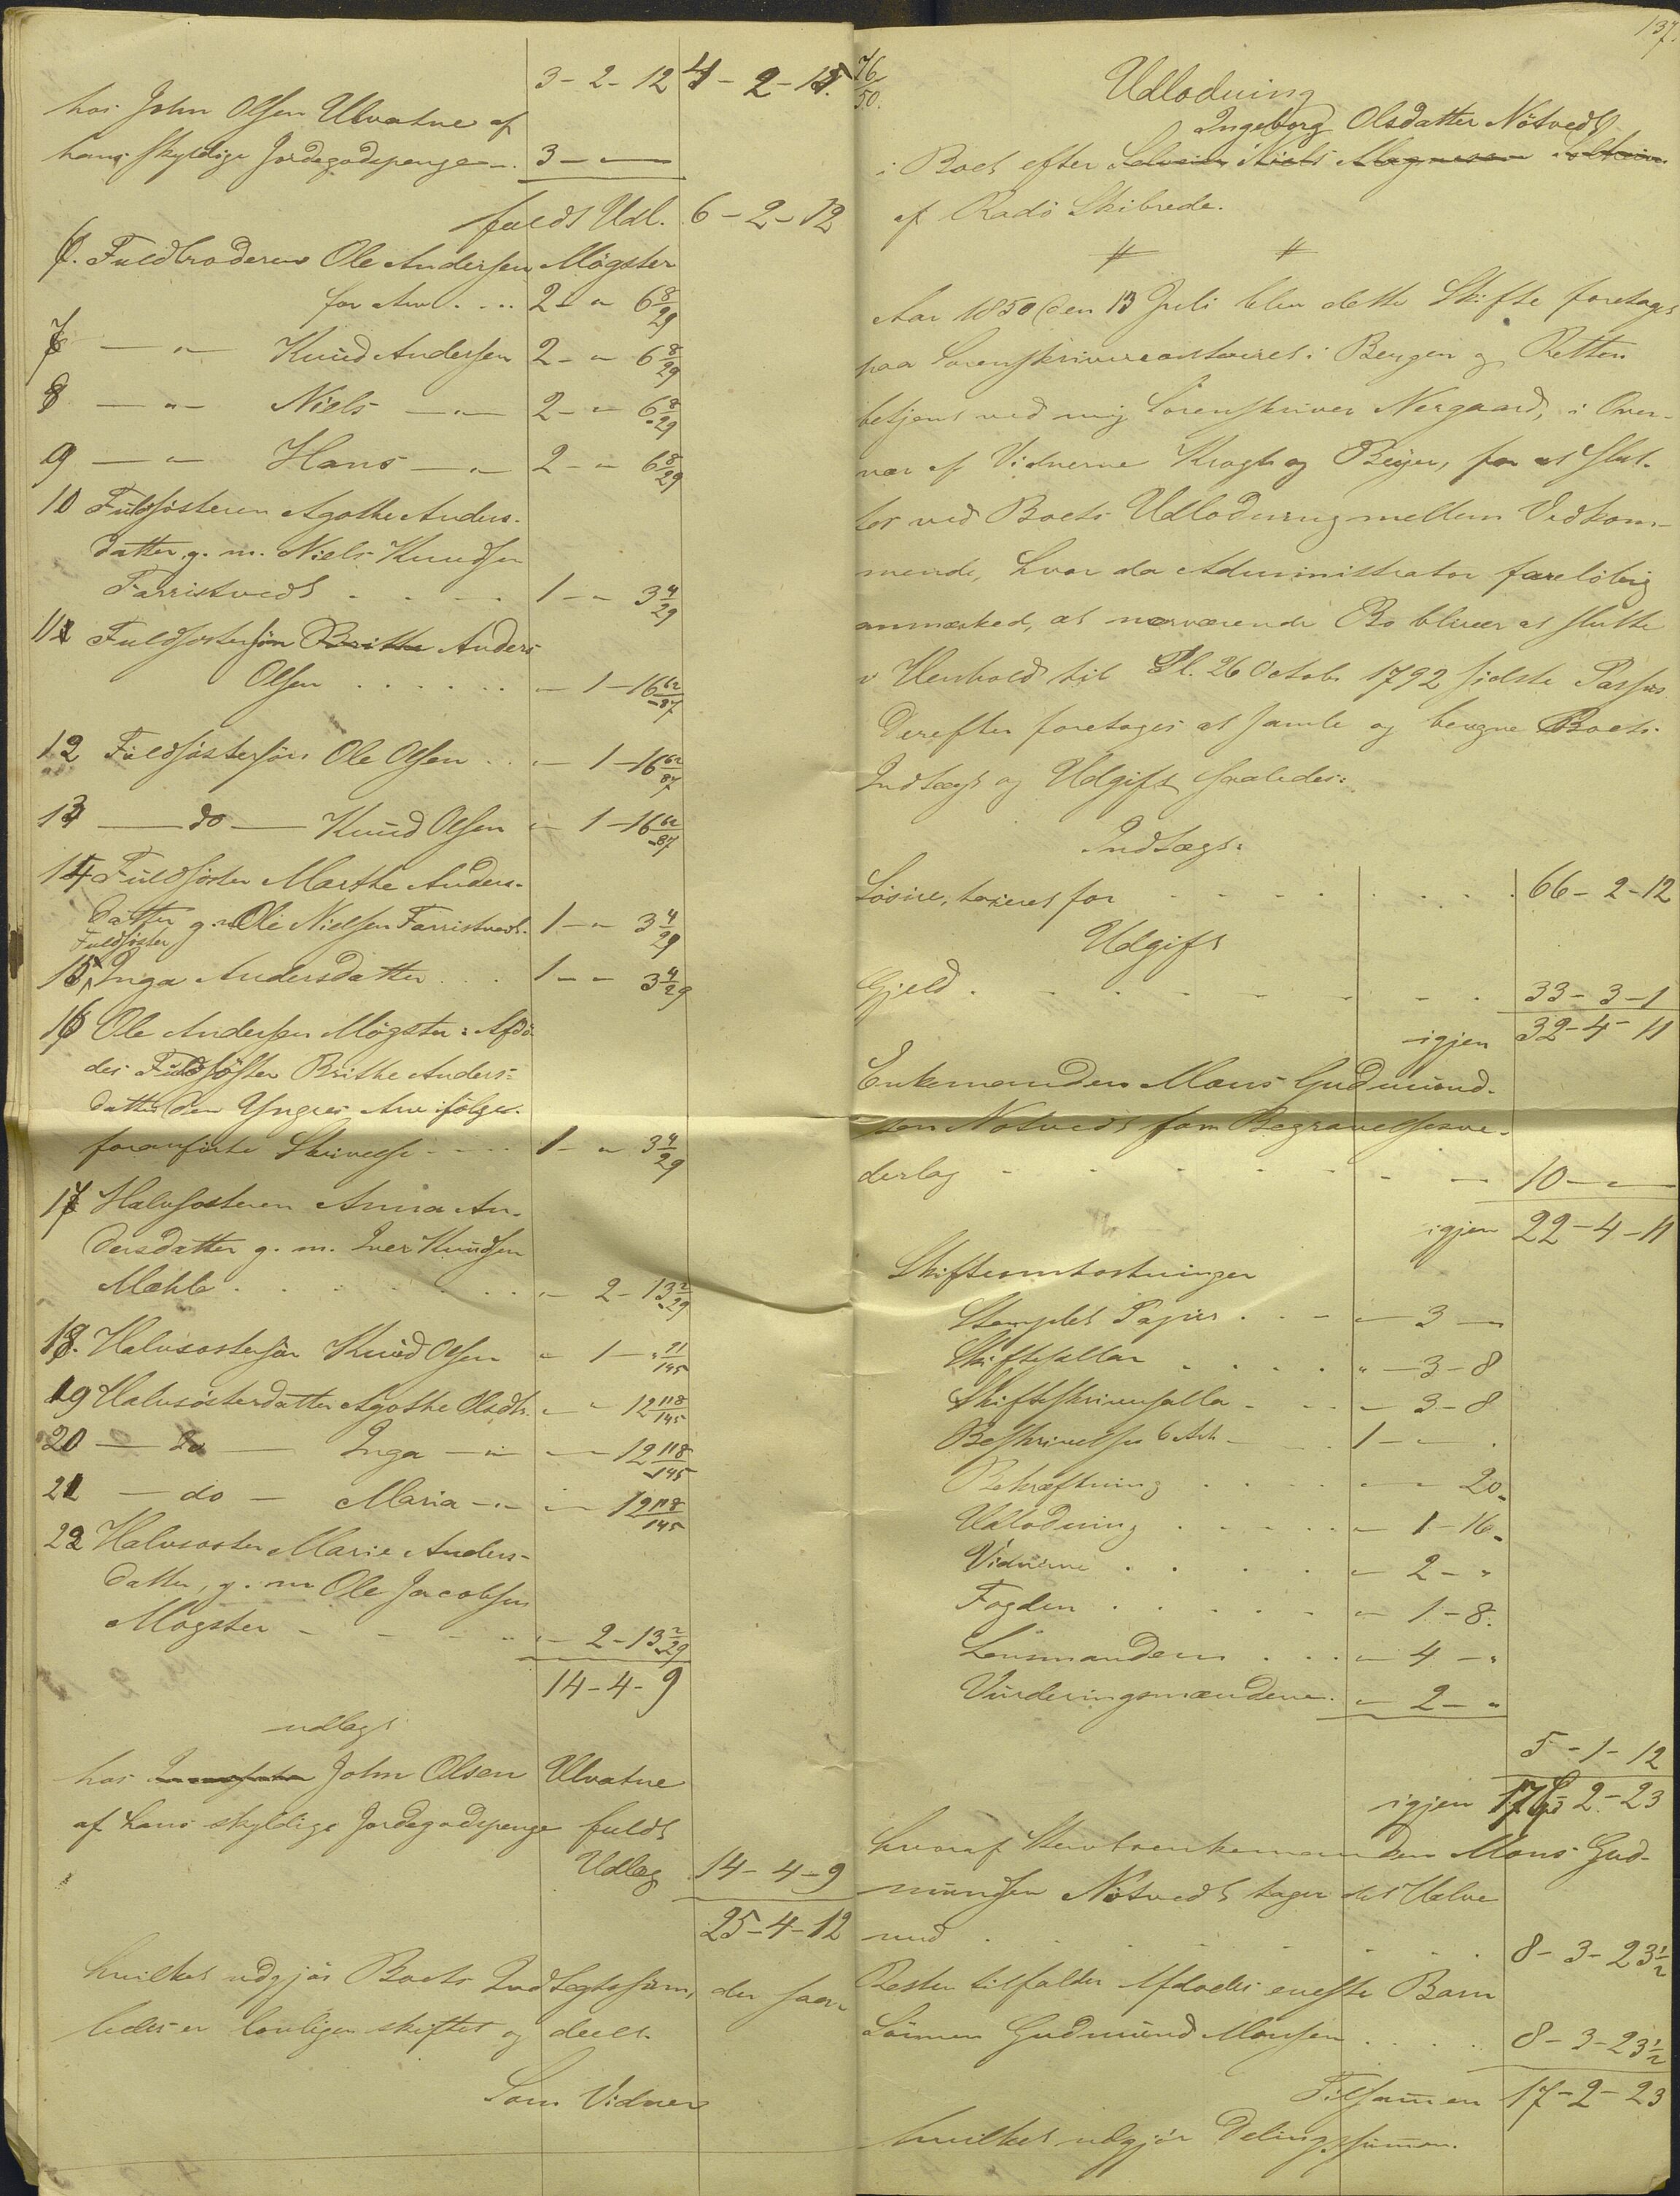 3-2-12 4-2-12.
hos John Olsen Ulvatne af
hans skyldige Jordegodspenge 3 - "
fuldt Udl. 6-2-12
6. Fuldbroderen Ole Andersen Møgster
for Arv .... 2 - " 6 8/29
7 — " — Knud Andersen 2 - " 6 8/29
8 — " — Niels — " — 2 - " 6 8/29
9 — " — Hans — " — 2 - " 6 8/29
10 Fuldsösteren Agothe Anders-
datter, g. m. Niels Knudsen
Farristvedt . . . . 1 - " 3 4/29
11 Fuldsöstersön Britthe Anders
Olsen . . . . . . " - 1 - 16 62/87
12 Fuldsöstersön Ole Olsen . . " - 1 - 16 62/87
13 — do — Knud Olsen " - 1 - 16 62/87
14 Fuldsöster Marthe Anders-
datter g. m. Ole Nielsen Farristvedt. 1 - " 3 4/29
Fuldsöster
15 Inga Andersdatter . . . 1 - " 3 4/29
16 Ole Andersen Mögster: Afdö-
des Fuldsöster Brithe Anders-
datter den Yngres Arv ifölge
foranförte Skrivelse . . . . 1 - " 3 4/29
17 Halvsösteren Anna An-
dersdatter g. m. Iver Knudsen
Mæhle . . . . . . . " - 2 - 13 2/29
18. Halvsöstersön Knud Olsen " - 1 - " 91/145
19 Halvsösterdatter Agothe Olsdtr. " - " 12 118/145
20 — do — Inga — " — " - " 12 118/145
21 — do — Maria — " — " - " 12 118/145
22 Halvsöster Marie Anders-
datter, g. m. Ole Jacobsen
Mögster - - - - . . " - 2 - 13 2/29
14-4-9
udlagt
hos John Olsen Ulvatne
af hans skyldige Jordegodspenge fuldt
Udlæg 14-4-9
25-4-12
hvilket udgjör Boets Indtægtssum, der saa-
ledes er lovligen skiftet og deelt.
Som Vidner
137.
76/50.
Udlodning
Ingeborg Olsdatter Nötvedt
i Boet efter Niels Magnesen
af Radö Skibrede.
Aar 1850 den 13 Juli blev dette Skifte foretaget
paa Sorenskrivercontoiret i Bergen og Retten
betjent ved mig Sorenskriver Nergaard, i Over-
vær af Vidnerne Krogh og Beyer, for at slut-
tes ved Boets Udlodning mellem Vedkom-
mende, hvor da Administrator foreløbig
anmærked, at nærværende Bo bliver at slutte
i Henhold til Pl. 26 Octob. 1792 sidste Passus
Derefter foretoges at samle og beregne Boets
Indtægt og Udgift saaledes:
Indtægt:
Lösöre, taxeret for - - - - . . . . 66-2-12
Udgift
Gjeld . - - - - - - . 33-3-1
igjen 32-4-11
Enkemanden Mons Gudmund-
sen Nötvedt som Begravelsesve-
derlag - - - - - - - 10 - "
igjen 22-4-11
Skifteomkostninger
Stemplet Papir . . - " - 3 - "
Skiftesallar . . . . " - 3 - 8
Skifteskriversalla - . . " - 3 - 8
Beskrivelse 6 Ark - . . 1 - " .
Bekræftning . . . . " - " 20.
Udlodning . . . . . " - 1 - 16.
Vidnerne . . . . . " - 2 - "
Fogden . . . . . " - 1 - 8.
Lensmanden . . . " - 4 - "
Vurderingsmændene. " - 2 - "
5-1-12
igjen 17-2-23
hvoraf Stervboenkemanden Mons Gud-
mundsen Nötvedt tager det Halve
med . . . . . . . 8-3-23 1/2
Resten tilfalder Afdødes eneste Barn
Sönnen Gudmund Monsen . . . . 8-3-23 1/2
Tilsammen 17-2-23
hvilket udgjör Delingssummen.